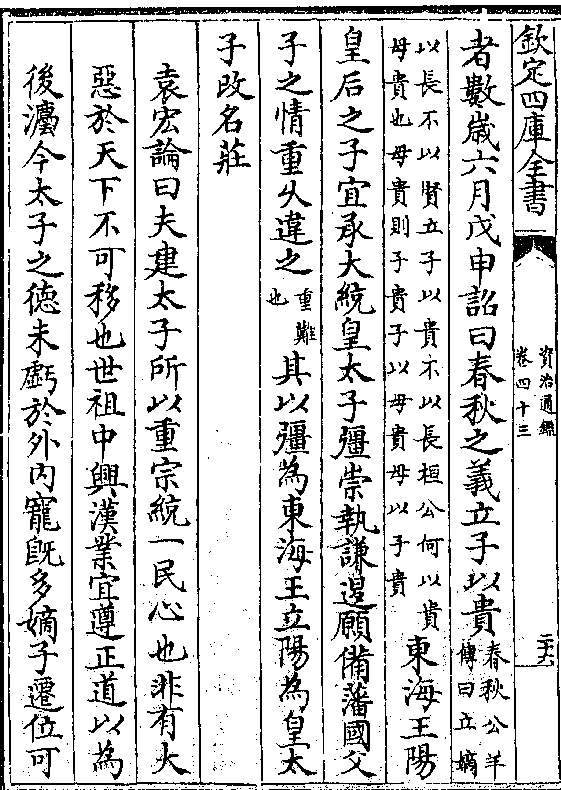 欽定四庫全書
資治通鑑
卷四十三
二六
者數歲六月戊申詔曰春秋之義立子以貴春秋公羊
傳曰立嫡
以長不以賢立子以貴不以長桓公何以貴
母貴也母貴則子貴子以母貴母以子貴東海王陽
皇后之子宜承大統皇太子彊崇執謙退願備藩國父
子之情重乆違之重難
也其以彊為東海王立陽為皇太
子改名莊
袁宏論曰夫建太子所以重宗統一民心也非有大
惡於天下不可移也世祖中興漢業宜遵正道以為
後灋今太子之德未虧於外内寵旣多嫡子遷位可